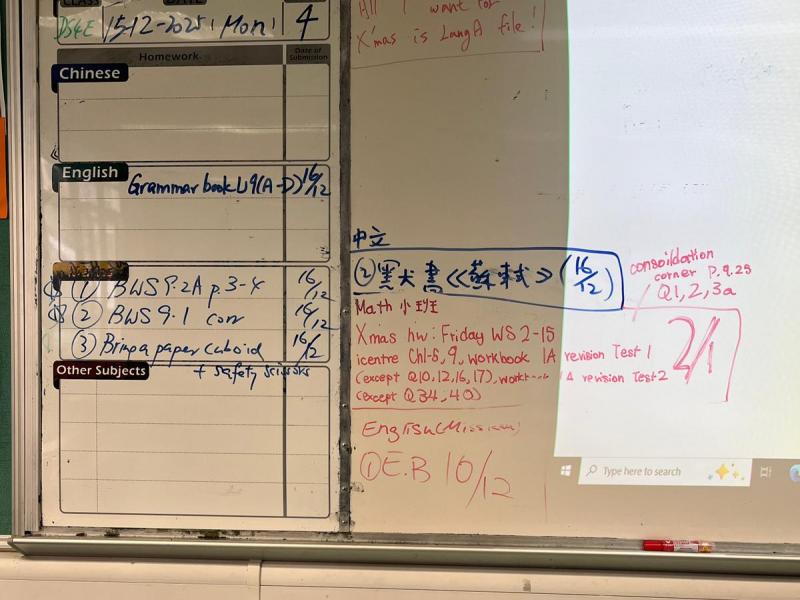 CLASS DATE
DS4E 15-12-2025 (Mon) 4
Homework Date of Submission
Chinese
English
Grammar book U9(A-D) 16/12
① BWS 9.2A p.3-4 16/12
② BWS 9.1 corr 16/12
③ Bring a paper cuboid 16/12
+ safety scissors
Other Subjects
All I want for
X'mas is Lang A file!
中立
② 《蘇軾》(16/12)
consoildation
corner P.9.25
Q1, 2, 3a
Math 小班
Xmas hw: Friday WS 2-15
icentre Ch1-5, 9, workbook 1A revision Test 1
(except Q10, 12, 16, 17), A revision Test 2
(except Q34, 40)
2/1
English (Mission)
① E.B 10/12
Type here to search